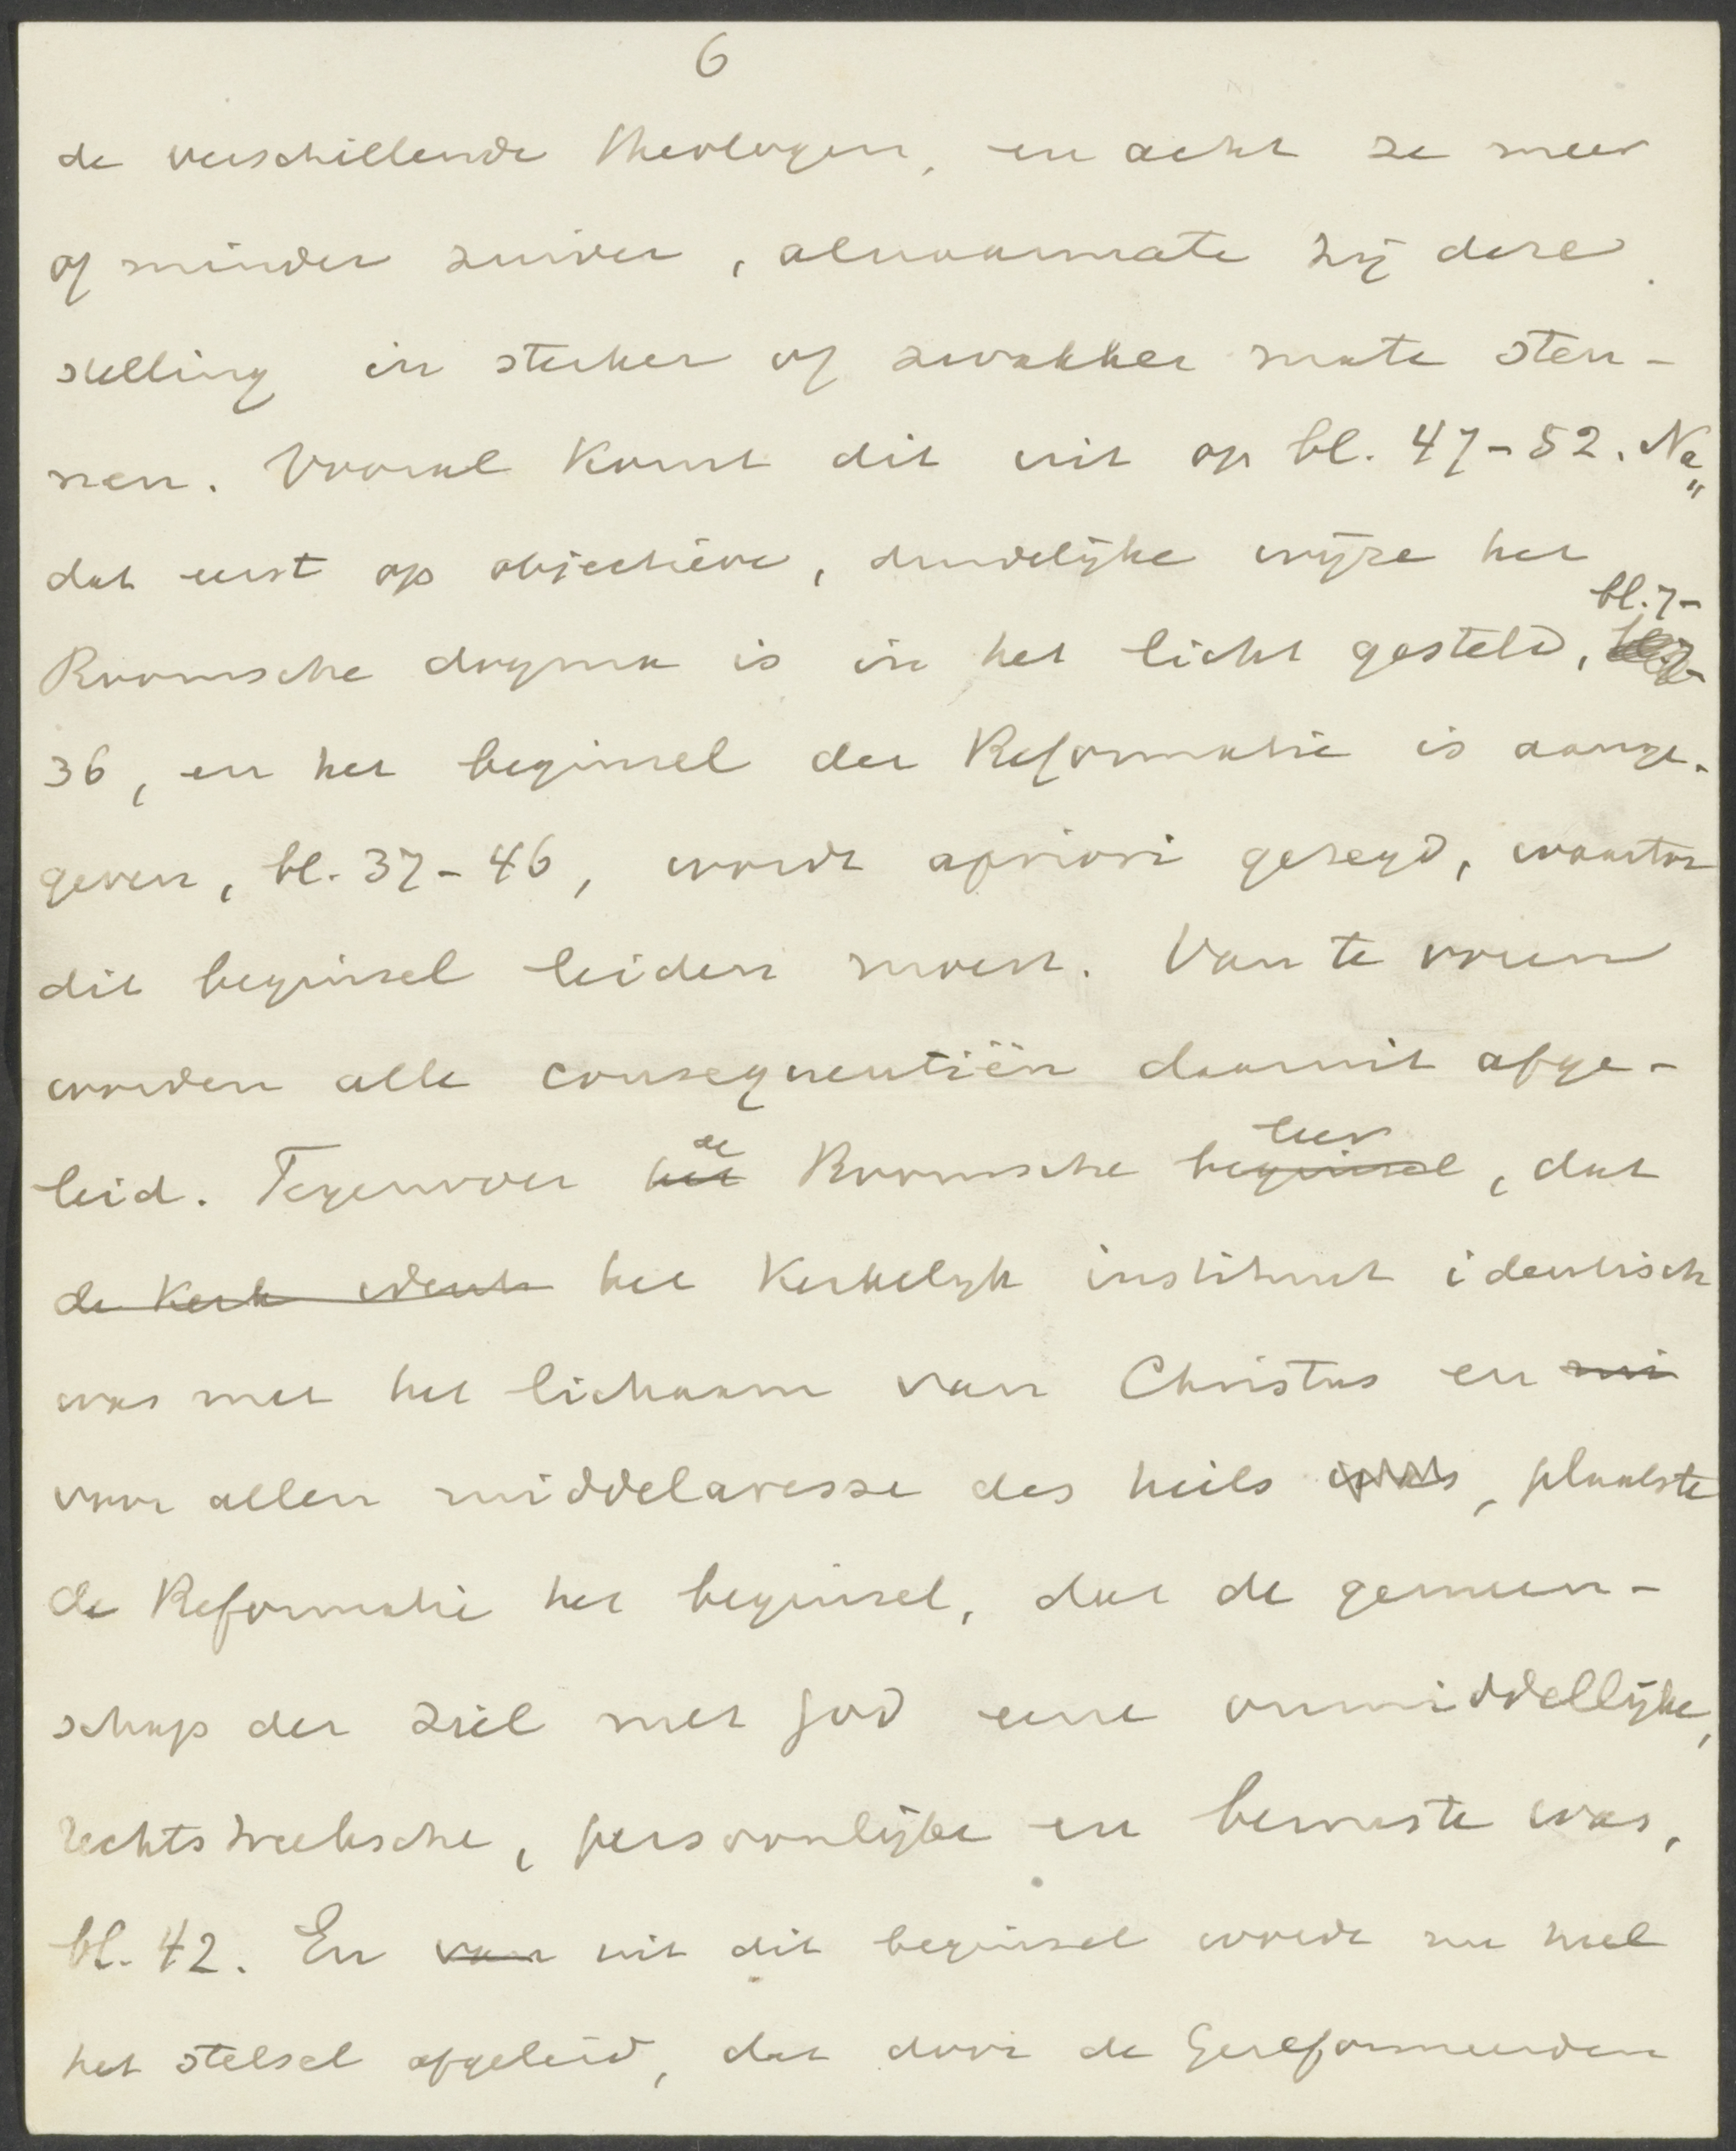 6
de verschillende theologen, en acht ze meer
of minder zuiver, alnaarmate zij deze
stelling in sterker of zwakker mate steu-
nen. Vooral komt dit uit op bl. 47-52. Na„
dat eerst op objectieve, duidelijke wijze het
bl. 7-
Roomsche dogma is in het licht gesteld,
36, en het beginsel der Reformatie is aange-
geven, bl. 37-46, wordt apriori gezegd, waartoe
dit beginsel leiden moest. Van te voren
worden alle consequentiën daaruit afge-
de leer
leid. Tegenover het Roomsche beginsel, dat
de Kerk ident het Kerkelijk instituut identisch
was met het lichaam van Christus en mi
voor allen middelaresse des heils was, plaatste
de Reformatie het beginsel, dat de gemeen-
schap der ziel met God eene onmiddellijke,
rechtstreeksche, persoonlijke en bewuste was,
bl. 42. En van uit dit beginsel wordt nu heel
het stelsel afgeleid, dat door de Gereformeerden